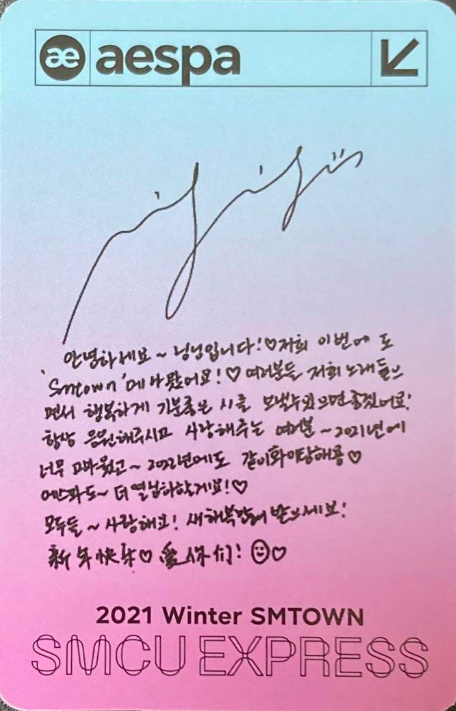 æ aespa
안녕하세요~ 닝닝입니다!♡ 저희 이번에 도
'Smtown'에 나왔어요!♡ 여러분들 저희 노래 들으
면서 행복하게 기분좋은 시를 보낼수있으면좋겠어요!
항상 응원해주시고 사랑해주는 여러분~ 2021년에
너무 고마웠고~ 2022년에도 같이화이팅해용♡
에스파도~ 더 열심히할게요!♡
모두들~ 사랑해요! 새해복많이 받으세요!
新年快乐♡ 爱你们! ☺♡
2021 Winter SMTOWN
SMCU EXPRESS